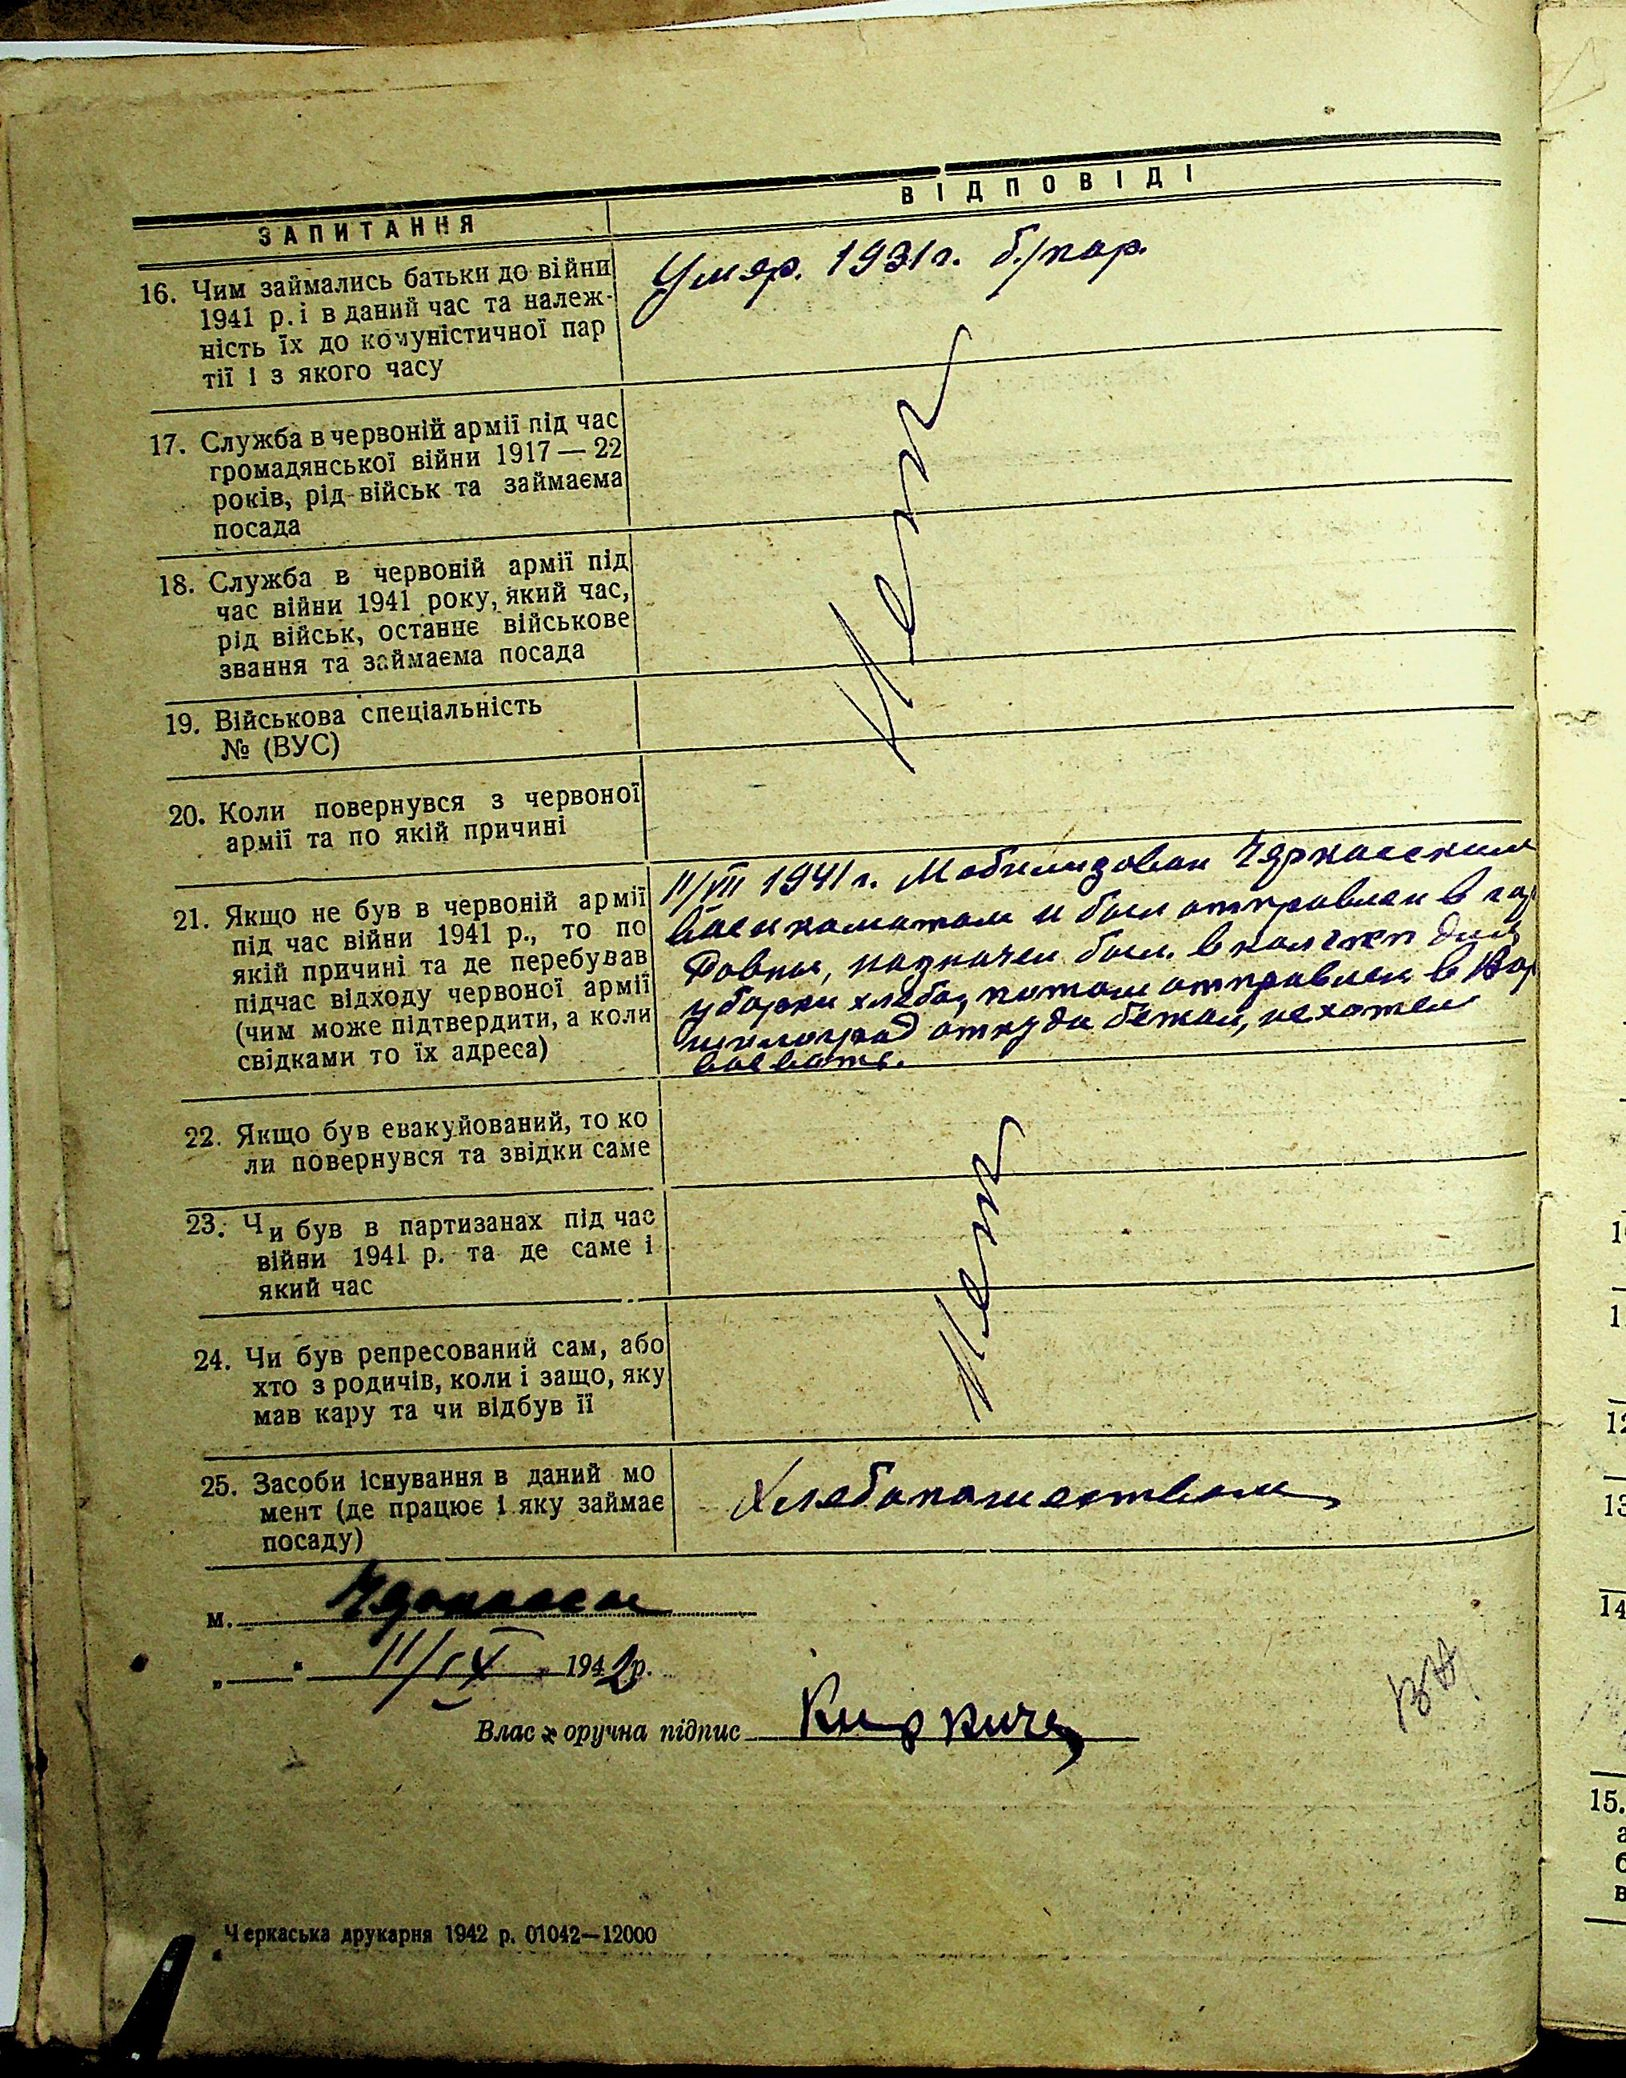 ЗАПИТАННЯ
ВІДПОВІДІ
16. Чим займались батьки до війни
1941 р. і в даний час та належ-
ність їх до комуністичної пар
тії і з якого часу
Умер. 1931 г. б/пар.
17. Служба в червоній армії під час
громадянської війни 1917—22
років, рід військ та займаєма
посада
18. Служба в червоній армії під
час війни 1941 року, який час,
рід військ, останнє військове
звання та займаєма посада
Нет
19. Військова спеціальність
№ (ВУС)
20. Коли повернувся з червоної
армії та по якій причині
21. Якщо не був в червоній армії
під час війни 1941 р., то по
якій причині та де перебував
підчас відходу червоної армії
(чим може підтвердити, а коли
свідками то їх адреса)
11/VII 1941 г. Мобилизован Черкасским
военкоматом и был отправлен в
назначен был в для
уборки хлеба, потом отправлен в Вор
шилоград откуда бежал, не хотел
воевать.
22. Якщо був евакуйований, то ко
ли повернувся та звідки саме
23. Чи був в партизанах під час
війни 1941 р. та де саме і
який час
Нет
24. Чи був репресований сам, або
хто з родичів, коли і защо, яку
мав кару та чи відбув її
25. Засоби існування в даний мо
мент (де працює і яку займає
посаду)
Хлебопашеством
м. Черкассы
„ “ 11/IX 1942 р.
Власноручна підпис
Черкаська друкарня 1942 р. 01042—12000
15.
14
13
12